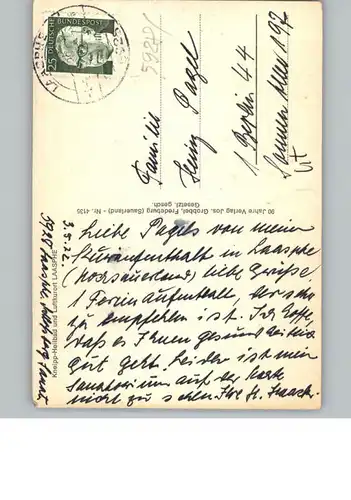 DEUTSCHE BUNDESPOST
25
LAASPHE
5928
Familie
Heinz Pagel
1 Berlin 44
Sonnenallee 192
Kneipp-Heilbad und Luftkurort LAASPHE
90 Jahre Verlag Jos. Grobbel, Fredeburg (Sauerland) - Nr. 4135
Gesetzl. gesch.
3.5.72.
Liebe Pagels von meinem
Kuraufenthalt in Laasphe
(Hochsauerland) liebe Grüße
1 Ferienaufenthalt, der sehr
zu empfehlen ist. Ich hoffe,
daß es Ihnen gesundheitlich
gut geht. Leider ist mein
Sanatorium auf der Karte
nicht zu sehen Ihre